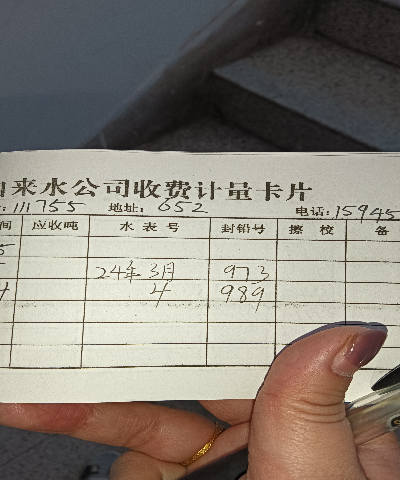 来水公司收费计量卡片
: 111755 地址: 652
电话: 15945
间 应收吨 水表号 封铅号 擦校 备
5
24年3月 973
4 4 989